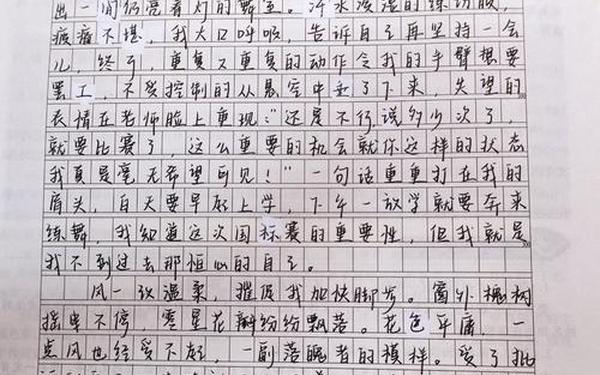 出一间仍亮着灯的舞室。汗水浸湿的练功服,
疲惫不堪,我大口呼吸,告诉自己再坚持一会
儿,终于,重复又重复的动作令我的手臂想要
罢工,不受控制的从悬空中垂了下来,失望的
表情在老师脸上重现:“还是不行说多少次了,
就要比赛了,这么重要的机会就你这样的状态
我真是毫无希望可见!”一句话重重打在我的
肩头,白天要早起上学,下午一放学就要奔来
练舞,我知道这次国标赛的重要性,但我就是
找不到过去那恒心的自己。
风一改温柔,摧促我加快脚步。窗外槐树
摇曳不停,零星花瓣纷纷飘落。花色平庸,一
点风也经受不起,一副落魄者的模样。受了批